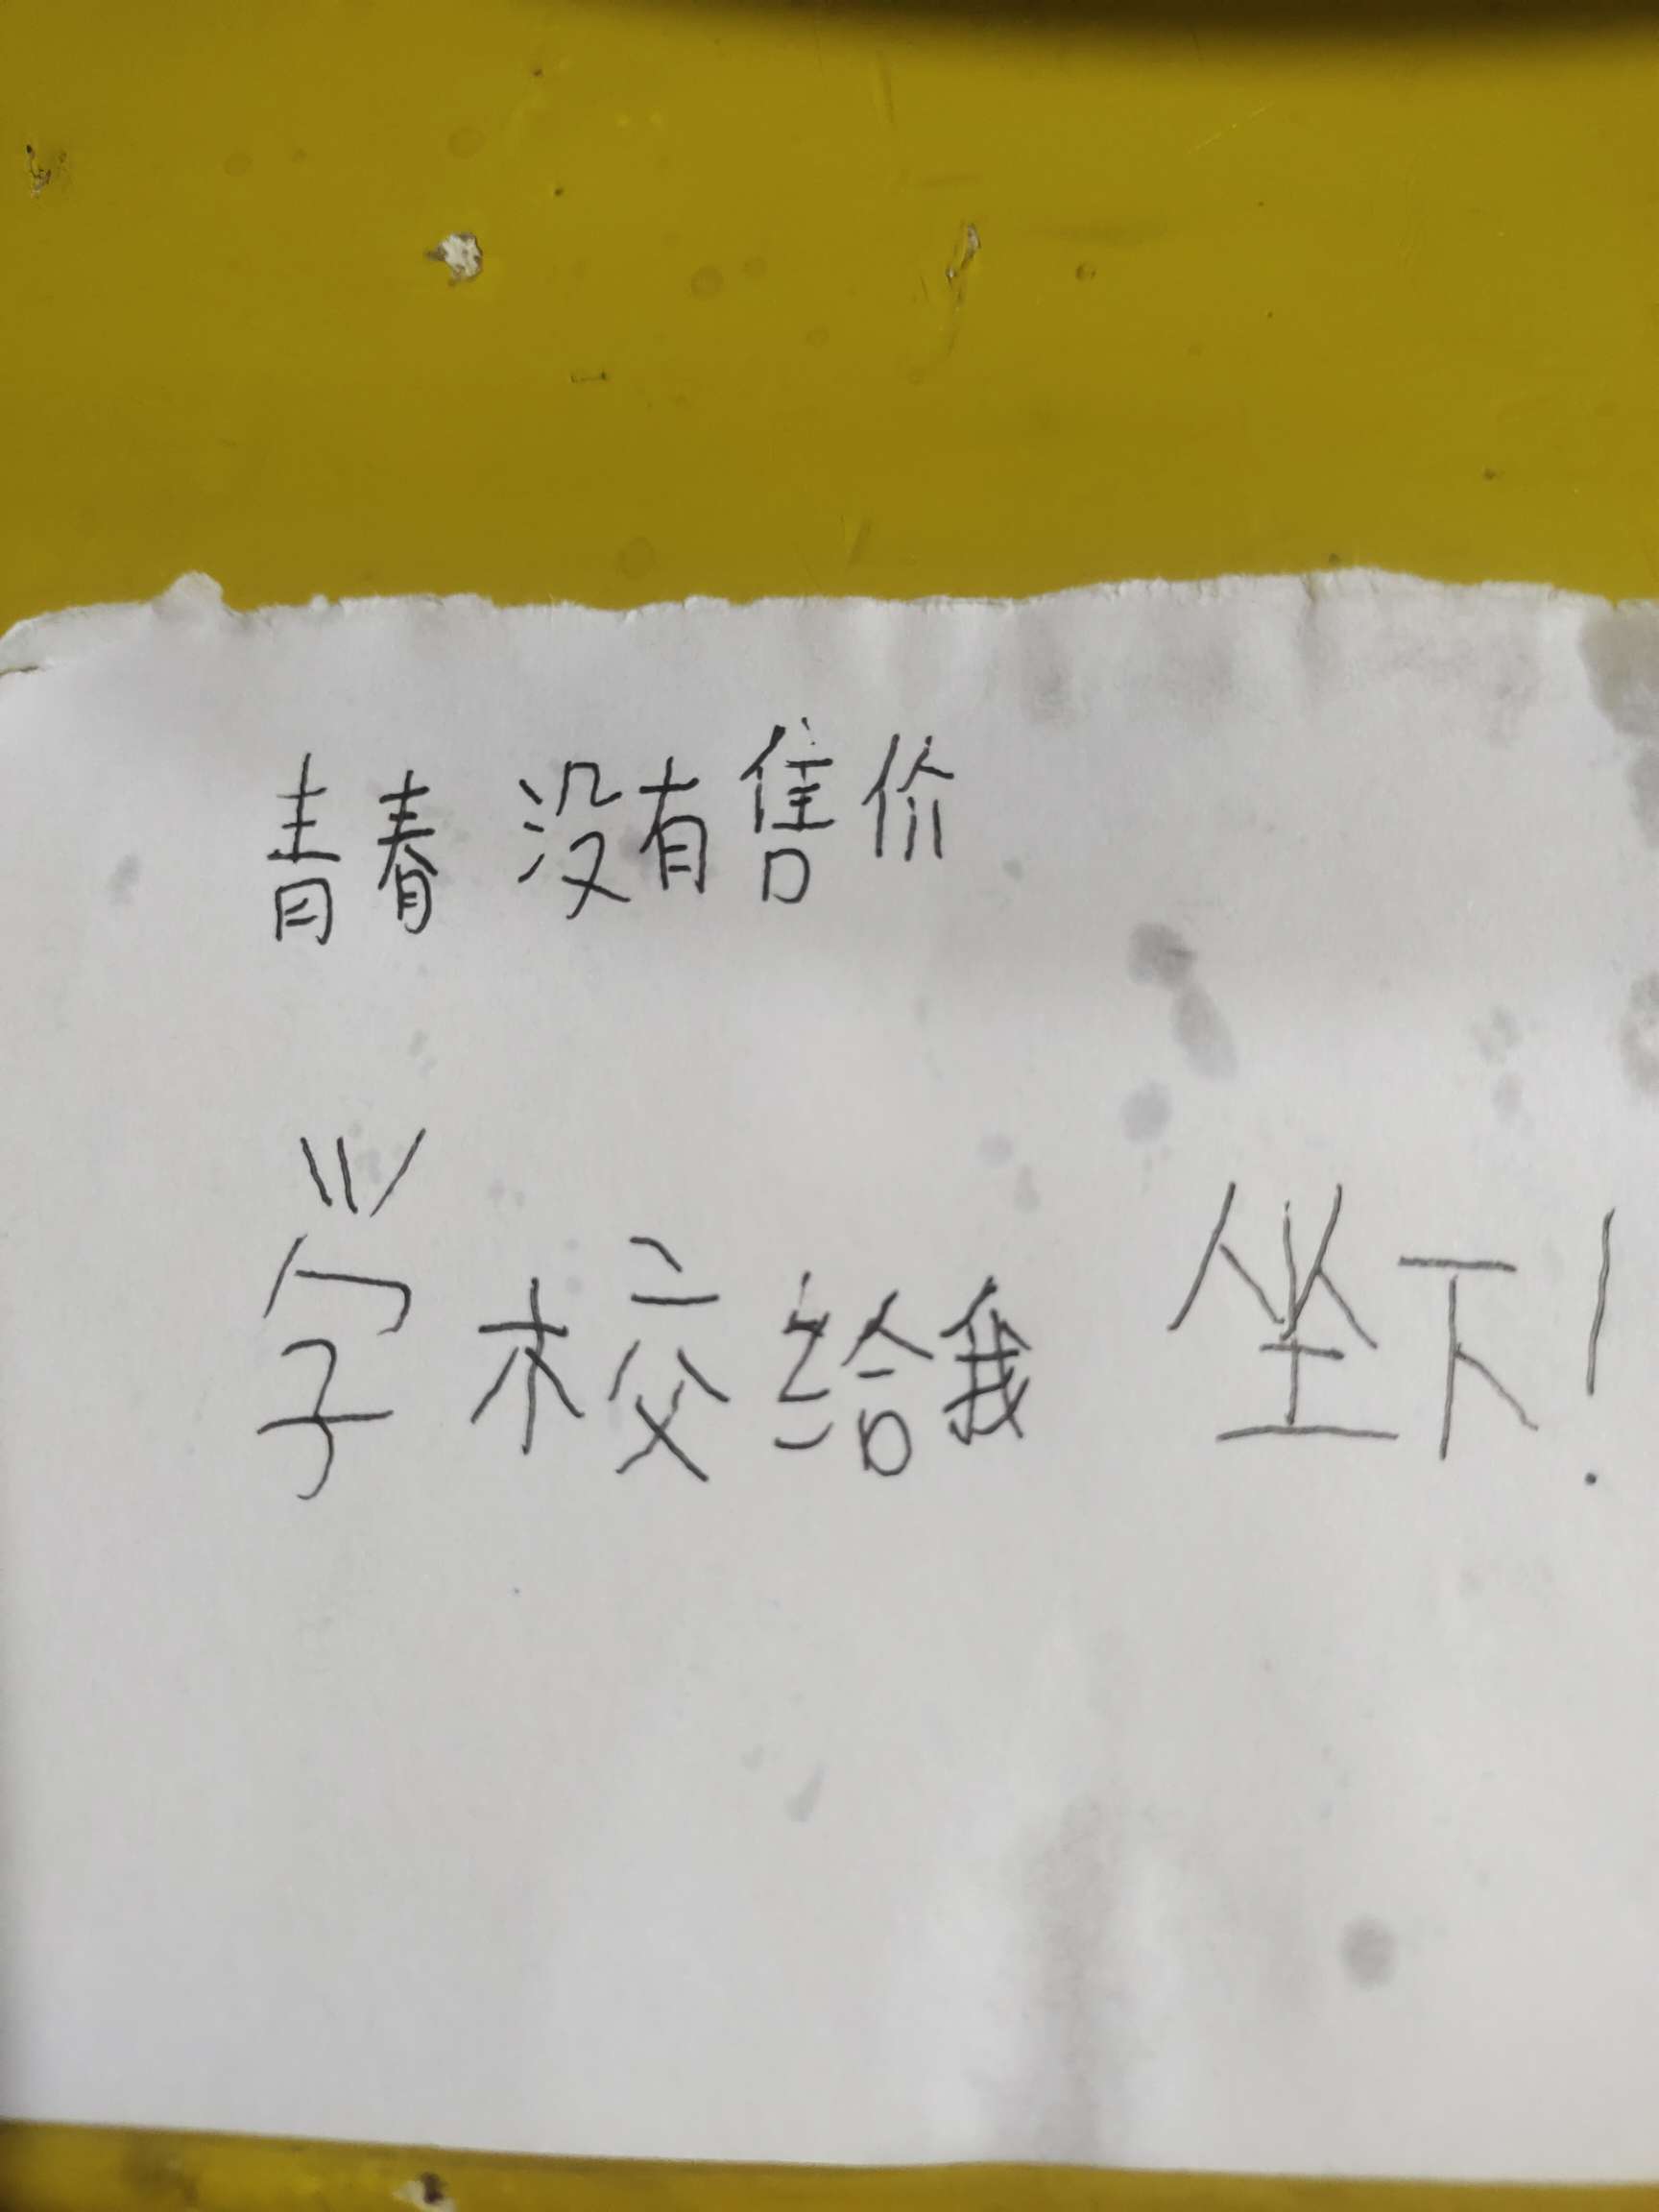 青春没有售价
学校给我 坐下!